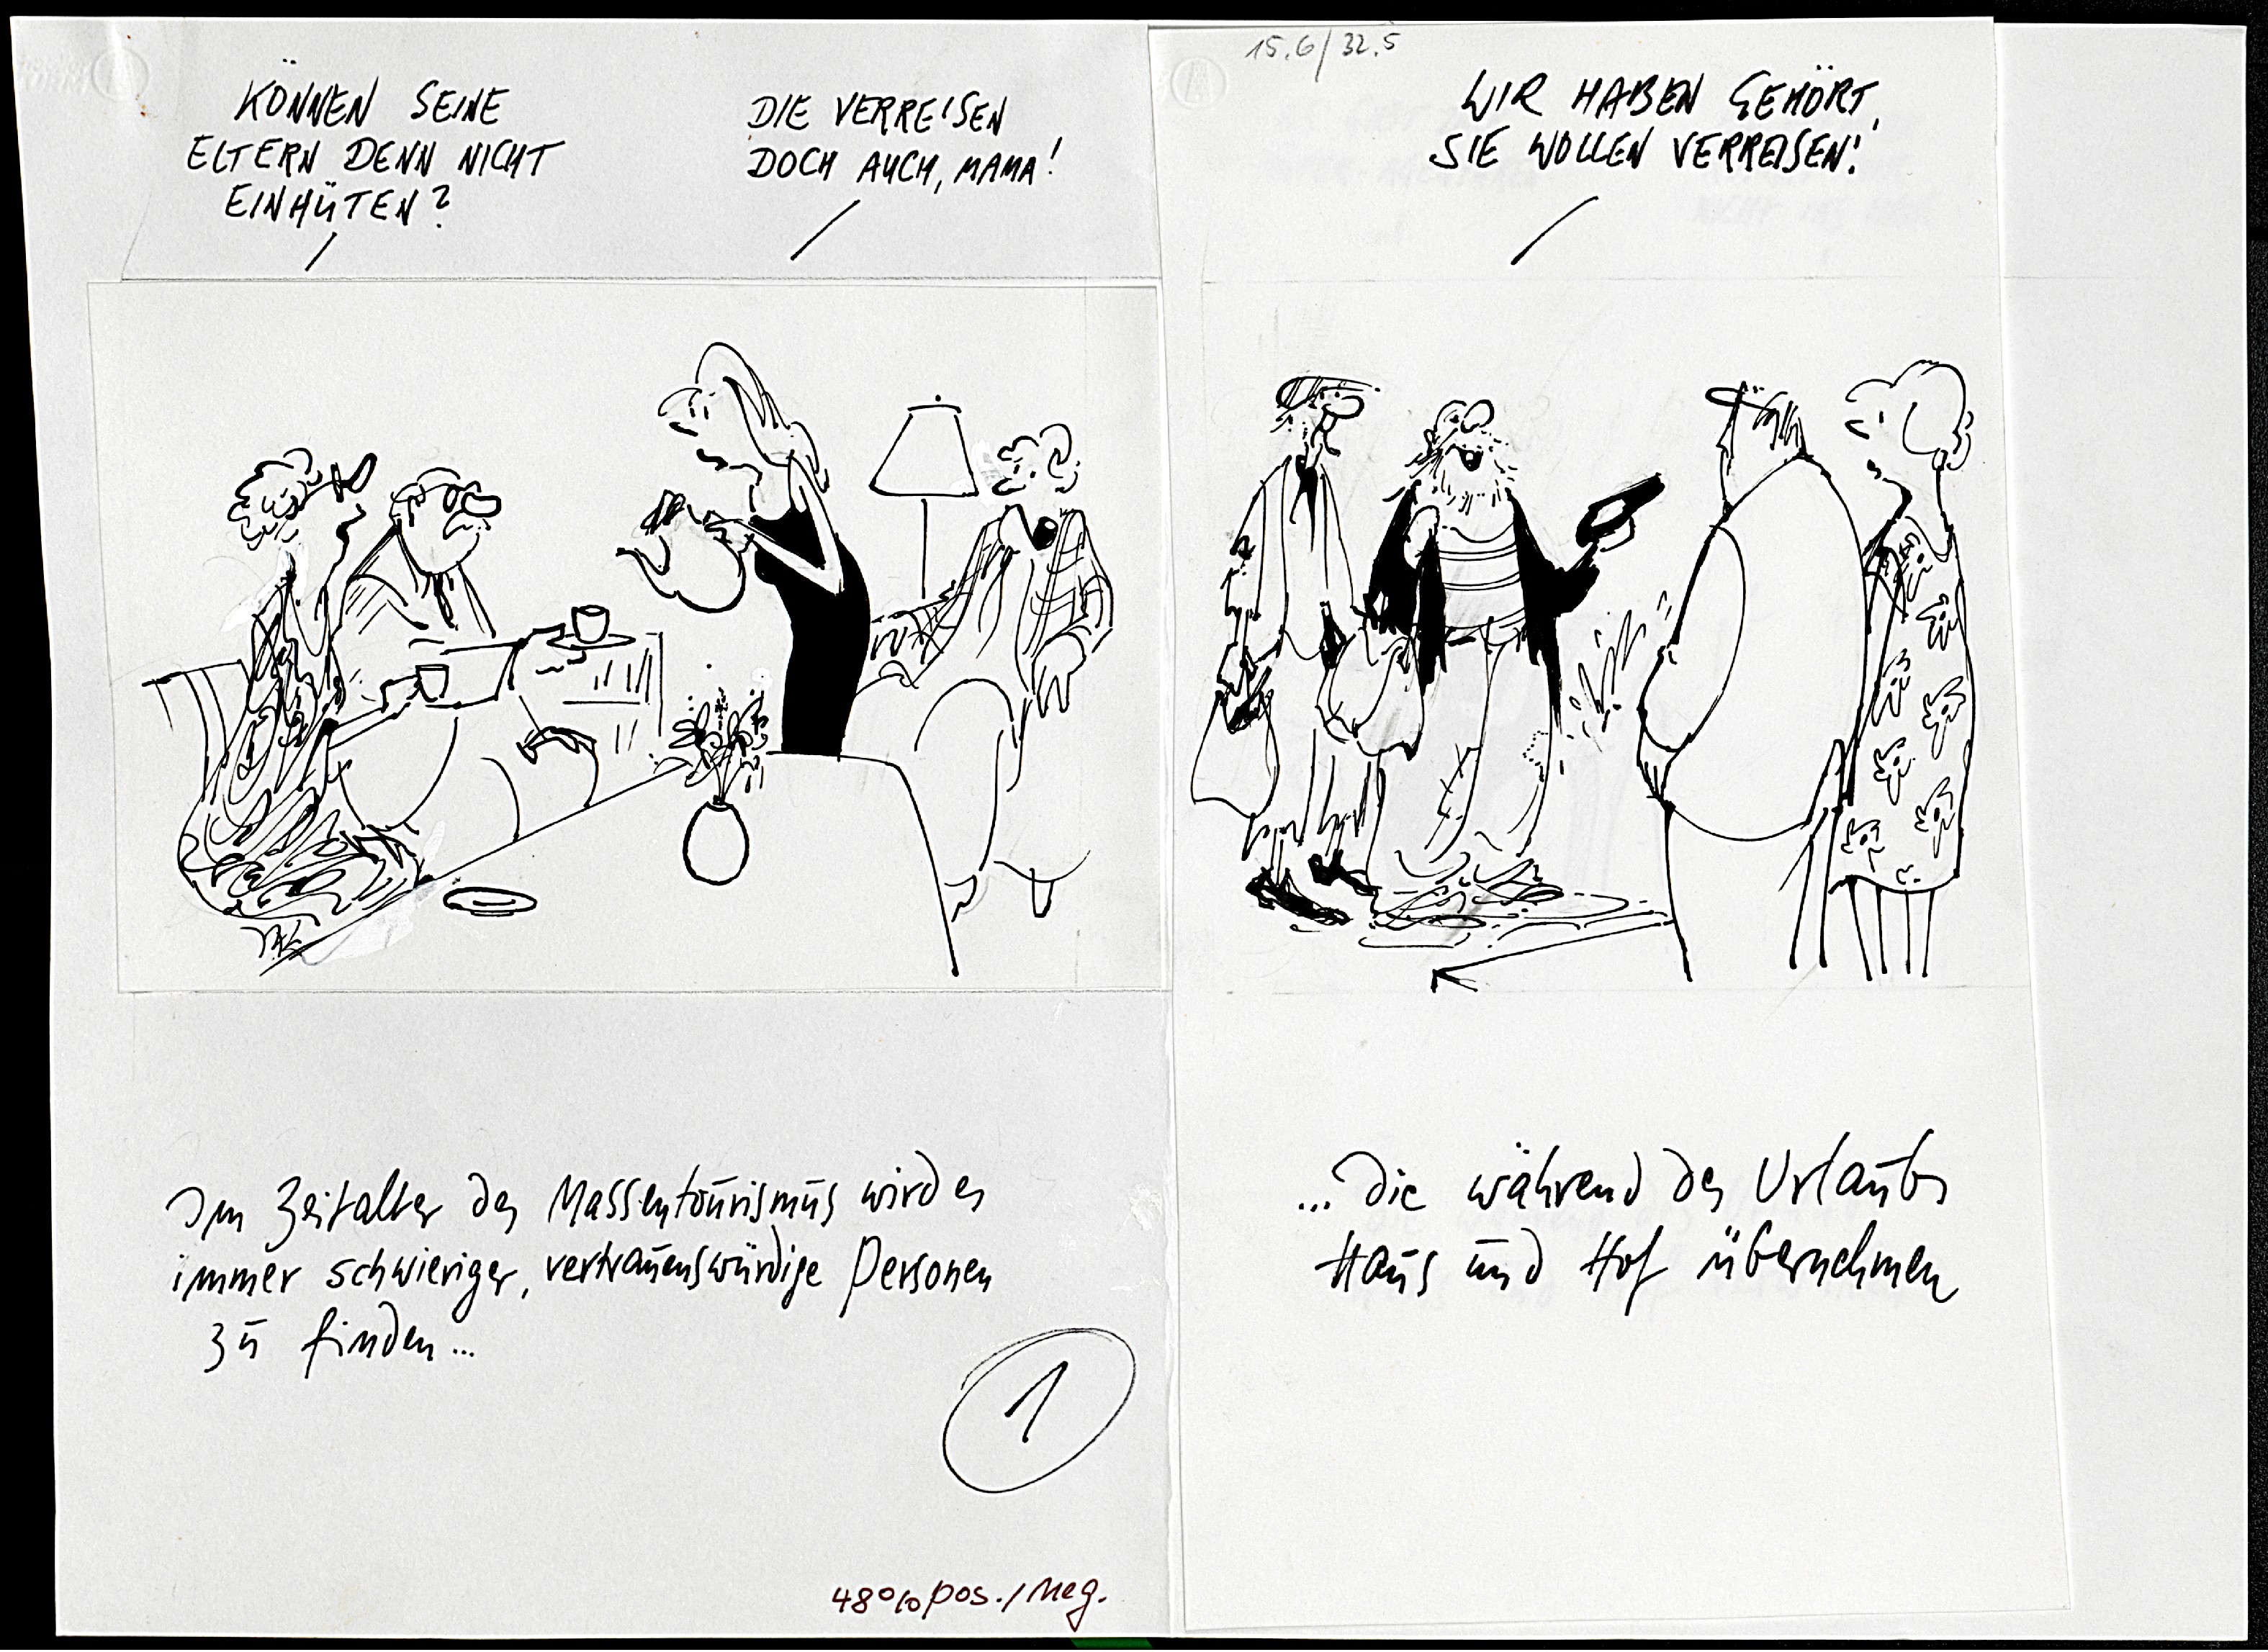 KÖNNEN SEINE
ELTERN DENN NICHT
EINHÜTEN?
DIE VERREISEN
DOCH AUCH, MAMA!
15.6/32.5
WIR HABEN GEHÖRT,
SIE WOLLEN VERREISEN!
Im Zeitalter des Massentourismus wird es
immer schwieriger, vertrauenswürdige Personen
zu finden...
1
48% pos./Neg.
...die während des Urlaubs
Haus und Hof übernehmen